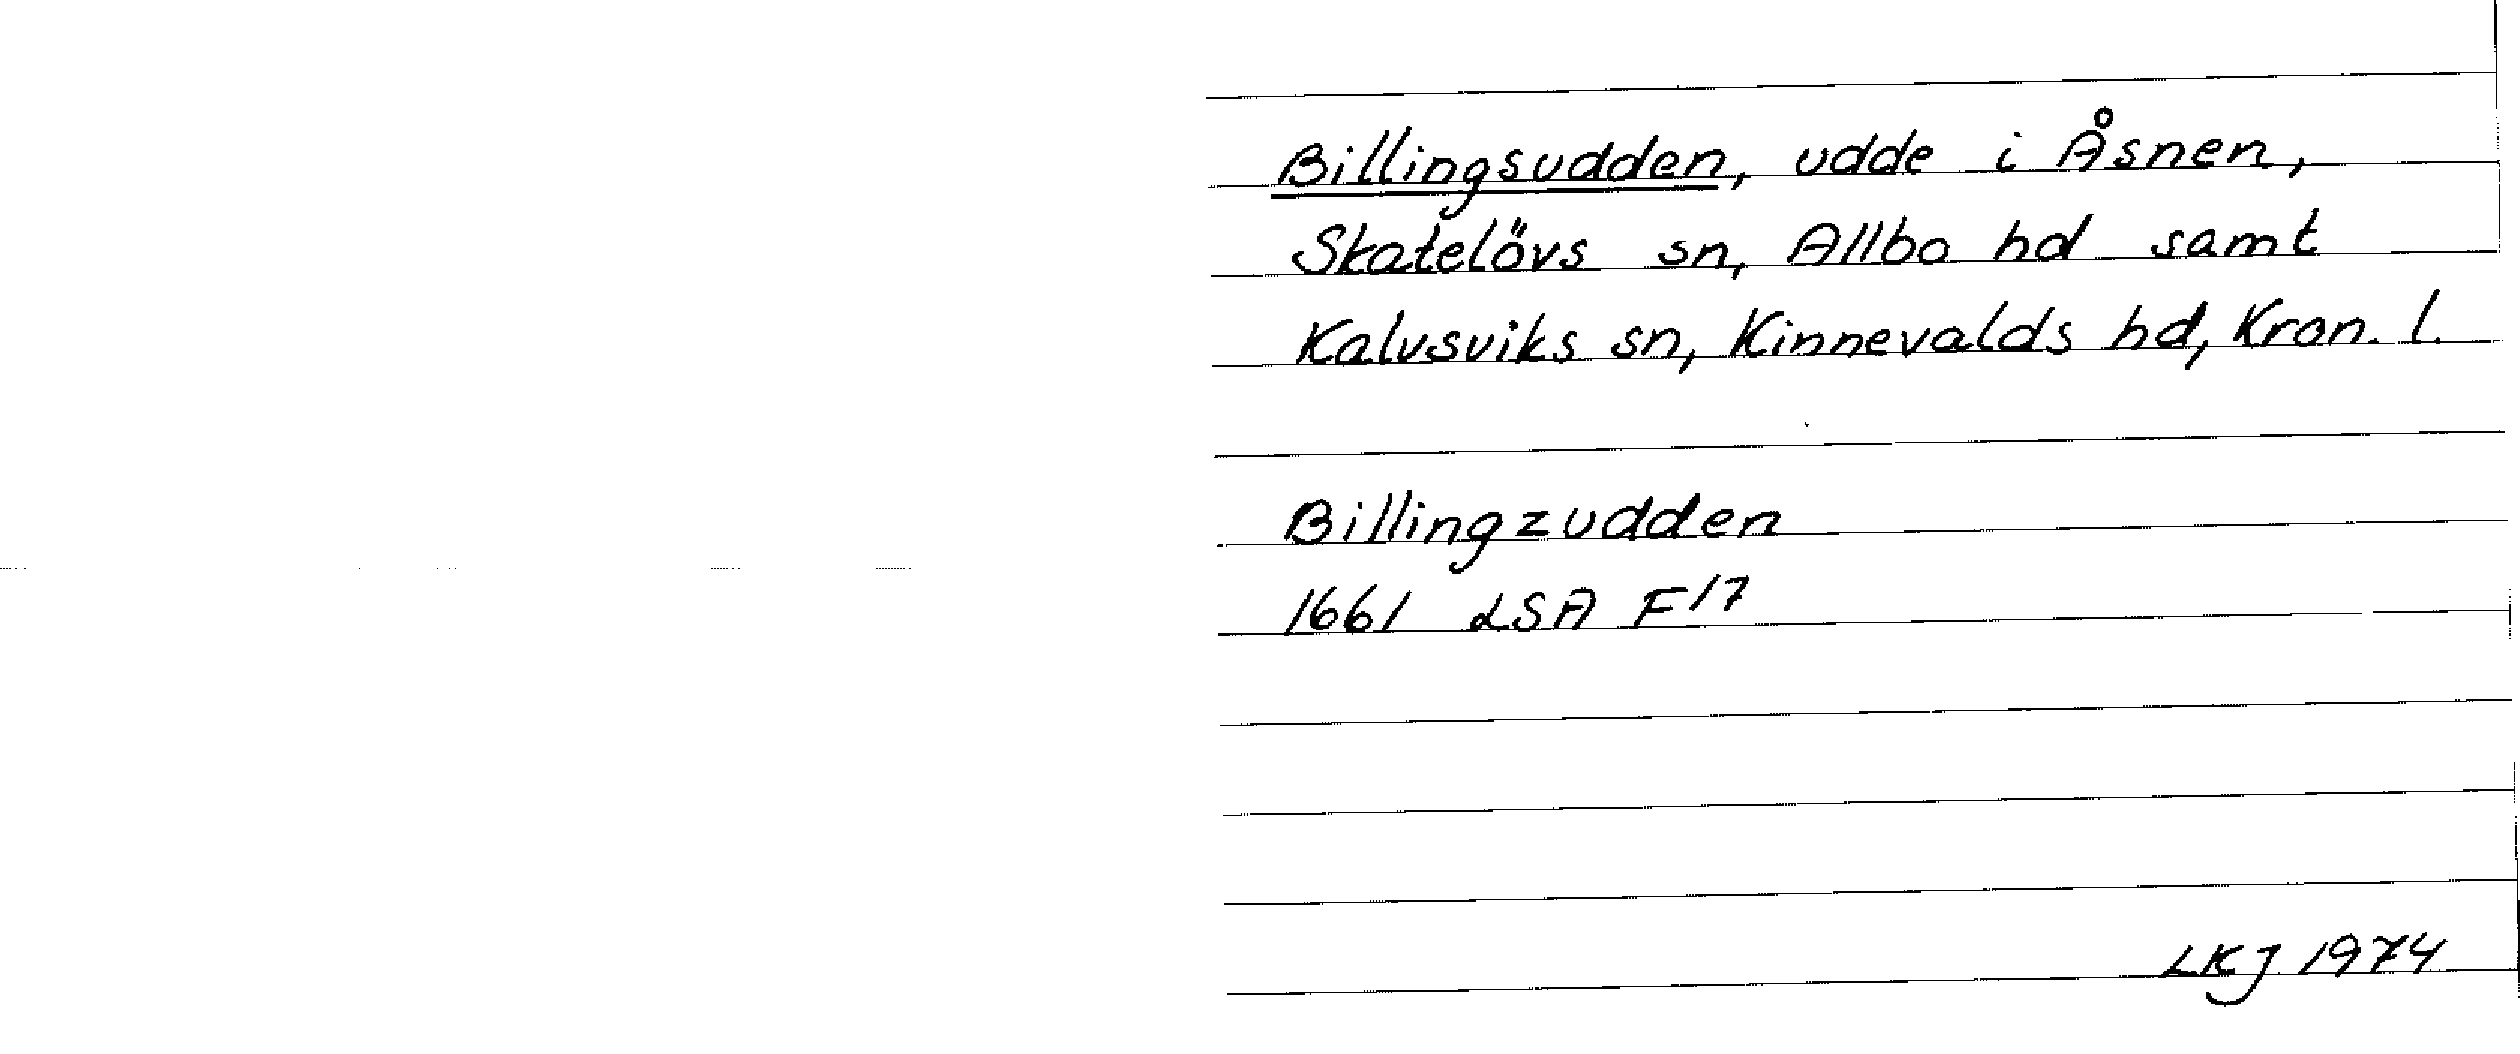 Billingsudden, udde i Åsnen,
Skatelövs sn, Allbo hd samt
Kalvsviks sn, Kinnevalds hd, Kron. l.
Billingzudden
1661 LSA F17
LKJ 1974